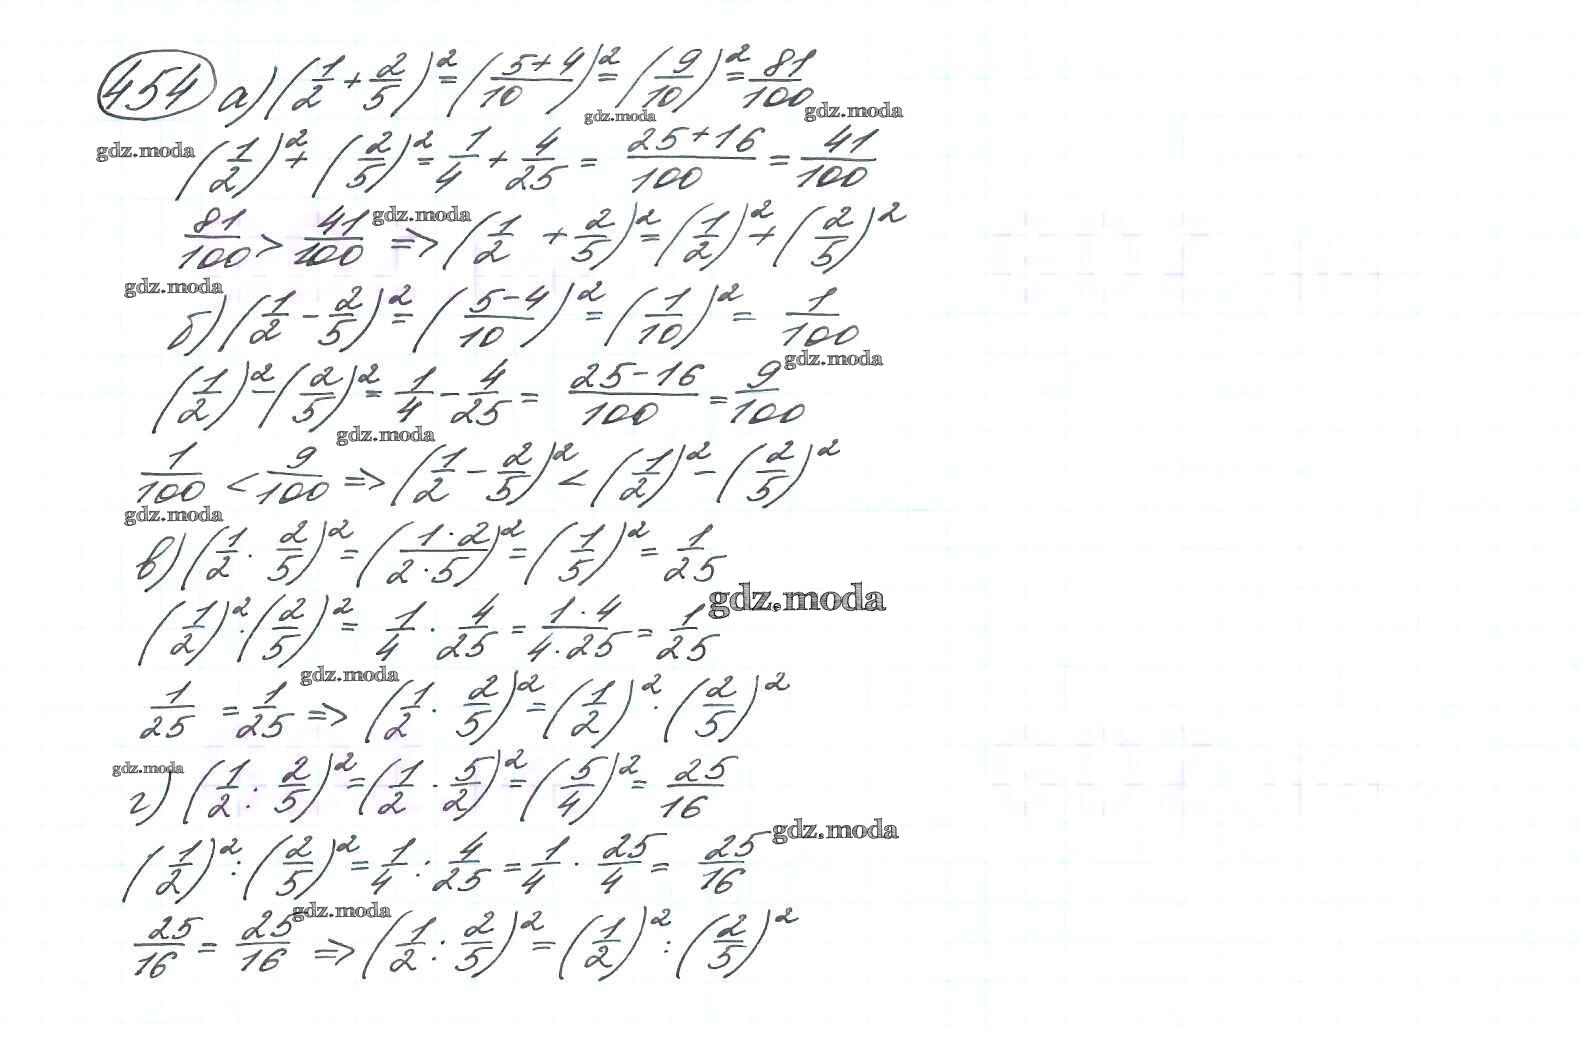 454 а) (1/2 + 2/5)² = ((5+4)/10)² = (9/10)² = 81/100
gdz.moda gdz.moda
gdz.moda (1/2)² + (2/5)² = 1/4 + 4/25 = (25+16)/100 = 41/100
81/100 > 41/100 gdz.moda => (1/2 + 2/5)² = (1/2)² + (2/5)²
gdz.moda
б) (1/2 - 2/5)² = ((5-4)/10)² = (1/10)² = 1/100
gdz.moda
(1/2)² - (2/5)² = 1/4 - 4/25 = (25-16)/100 = 9/100
gdz.moda
1/100 < 9/100 => (1/2 - 2/5)² < (1/2)² - (2/5)²
gdz.moda
в) (1/2 · 2/5)² = ((1·2)/(2·5))² = (1/5)² = 1/25
gdz.moda
(1/2)² · (2/5)² = 1/4 · 4/25 = (1·4)/(4·25) = 1/25
gdz.moda
1/25 = 1/25 => (1/2 · 2/5)² = (1/2)² · (2/5)²
gdz.moda
г) (1/2 : 2/5)² = (1/2 · 5/2)² = (5/4)² = 25/16
gdz.moda
(1/2)² : (2/5)² = 1/4 : 4/25 = 1/4 · 25/4 = 25/16
gdz.moda
25/16 = 25/16 => (1/2 : 2/5)² = (1/2)² : (2/5)²